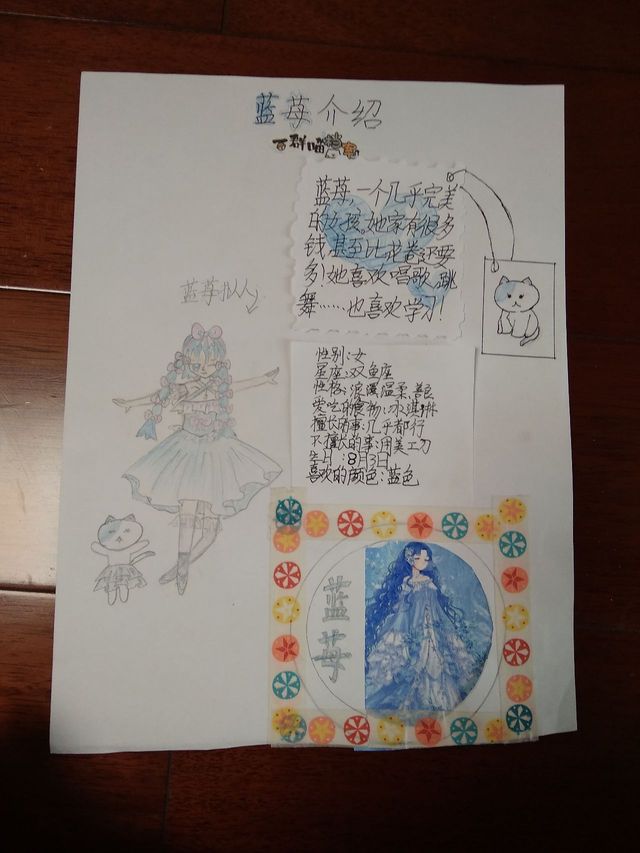 蓝莓介绍
百群喵档案
蓝莓,一个几乎完美
的女孩。她家有很多
钱,甚至比花卷还要
多!她喜欢唱歌,跳
舞……也喜欢学习!
蓝莓
性别:女
星座:双鱼座
性格:浪漫温柔善良
爱吃的食物:冰淇淋
擅长的事:几乎都行
不擅长的事:用美工刀
生日:8月3日
喜欢的颜色:蓝色
蓝
莓